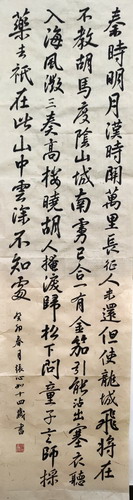 秦時明月漢時關萬里長征人未還但使龍城飛將在
不教胡馬度陰山城南虜已合一有金笳引能沾出塞衣聽
入海風微三奏高樓曉胡人掩淚歸松下問童子言師採
藥去祇在此山中雲深不知處
癸卯春月張心如十四歲書